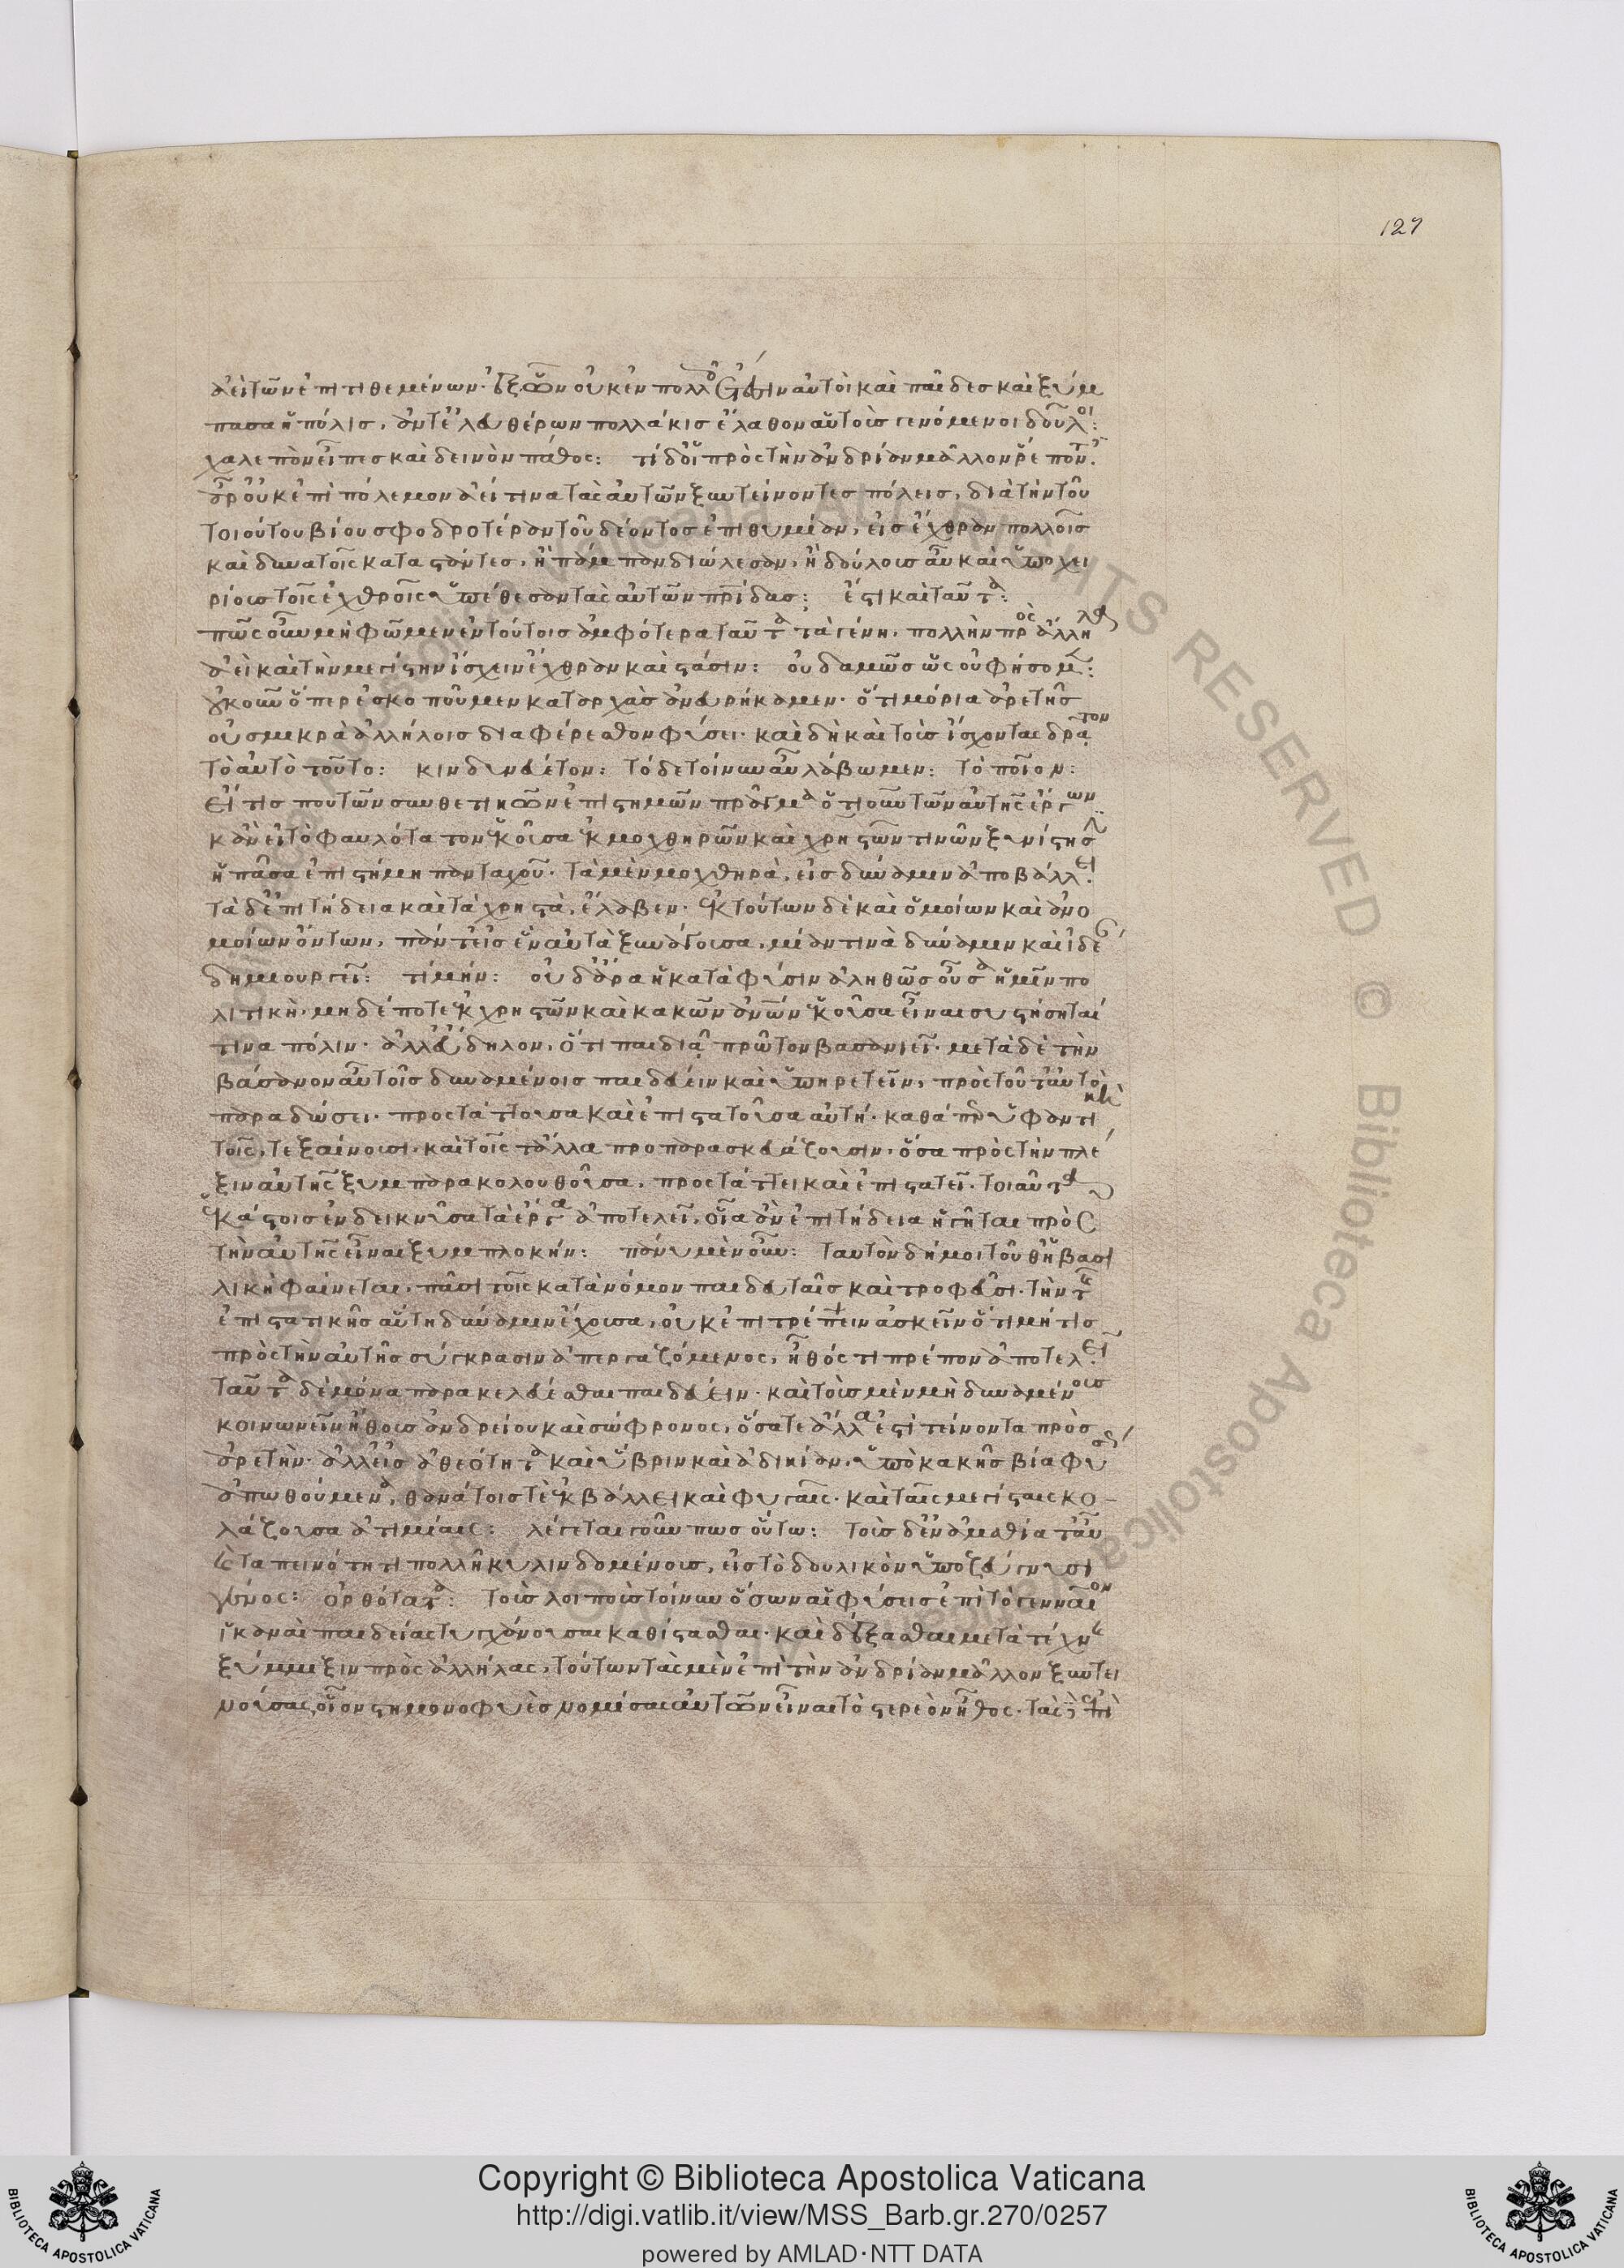 127
ἀεὶ τῶν ἐπιτιθεμένων· ἐξ ὧν οὐκ ἐν πολλοῖς ἔτεσιν αὐτοὶ καὶ παῖδες καὶ ξύμ
πασα ἡ πόλις, ἀντ' ἐλευθέρων πολλάκις ἔλαθον αὑτοὺς γενόμενοι δοῦλοι:
χαλεπὸν εἶπες καὶ δεινὸν πάθος: τί δ' οἱ πρὸς τὴν ἀνδρίαν μᾶλλον ῥέποντες·
ἆρ' οὐκ ἐπὶ πόλεμον ἀεί τινα τὰς αὑτῶν ξυντείνοντες πόλεις, διὰ τὴν τοῦ
τοιούτου βίου σφοδροτέραν τοῦ δέοντος ἐπιθυμίαν, εἰς ἔχθραν πολλοῖς
καὶ δυνατοῖς καταστάντες, ἢ πάμπαν διώλεσαν, ἢ δούλους αὖ καὶ ὑποχει
ρίους τοῖς ἐχθροῖς ὑπέθεσαν τὰς αὑτῶν πατρίδας: ἔστι καὶ ταῦτα:
πῶς οὖν μὴ φῶμεν ἐν τούτοις ἀμφότερα ταῦτα τὰ γένη, πολλὴν πρὸς ἄλληλα
ἀεὶ καὶ τὴν μεγίστην ἴσχειν ἔχθραν καὶ στάσιν: οὐδαμῶς ὡς οὐ φήσομεν:
οὐκοῦν ὅπερ ἐσκοποῦμεν κατ' ἀρχὰς ἀνευρήκαμεν· ὅτι μόρια ἀρετῆς
οὐ σμικρὰ ἀλλήλοις διαφέρεσθον φύσει· καὶ δὴ καὶ τοὺς ἴσχοντας δρᾶτον
τὸ αὐτὸ τοῦτο: κινδυνεύετον: τόδε τοίνυν αὖ λάβωμεν: τὸ ποῖον:
εἴ τίς που τῶν συνθετικῶν ἐπιστημῶν πρᾶγμα ὁτιοῦν τῶν αὑτῆς ἔργων
κἂν εἰ τὸ φαυλότατον ἑκοῦσα ἐκ μοχθηρῶν καὶ χρηστῶν τινῶν ξυνίστησιν
ἢ πᾶσα ἐπιστήμη πανταχοῦ· τὰ μὲν μοχθηρὰ, εἰς δύναμιν ἀποβάλλει·
τὰ δ' ἐπιτήδεια καὶ τὰ χρηστὰ, ἔλαβεν· ἐκ τούτων δὲ καὶ ὁμοίων καὶ ἀνο
μοίων ὄντων, πάντ' εἰς ἓν αὐτὰ ξυνάγουσα, μίαν τινὰ δύναμιν καὶ ἰδέαν
δημιουργεῖ: τί μήν: οὐδ' ἄρα ἡ κατὰ φύσιν ἀληθῶς οὖσα ἡμῖν πο
λιτικὴ, μηδέποτε ἐκ χρηστῶν καὶ κακῶν ἀνθρώπων ἑκοῦσα εἶναι συστήσηταί
τινα πόλιν· ἀλλ' εὔδηλον, ὅτι παιδιᾷ πρῶτον βασανιεῖ· μετὰ δὲ τὴν
βάσανον αὖ τοῖς δυναμένοις παιδεύειν καὶ ὑπηρετεῖν, πρὸς τοῦτ' αὐτὸ
παραδώσει· προστάττουσα καὶ ἐπιστατοῦσα αὐτή· καθάπερ ὑφαντικὴ
τοῖς τε ξαίνουσι, καὶ τοῖς τἄλλα προπαρασκευάζουσιν, ὅσα πρὸς τὴν πλέ
ξιν αὐτῆς ξυμπαρακολουθοῦσα, προστάττει καὶ ἐπιστατεῖ· τοιαῦτα
ἑκάστοις ἐνδεικνῦσα τὰ ἔργα ἀποτελεῖν, οἷα ἂν ἐπιτήδεια ἡγῆται πρὸς
τὴν αὑτῆς εἶναι ξυμπλοκήν: πάνυ μὲν οὖν: ταυτὸν δή μοι τοῦθ' ἡ βασι
λικὴ φαίνεται, πᾶσι τοῖς κατὰ νόμον παιδευταῖς καὶ τροφεῦσι· τὴν τῆς
ἐπιστατικῆς αὕτη δύναμιν ἔχουσα, οὐκ ἐπιτρέπειν ἀσκεῖν ὅτι μή τις
πρὸς τὴν αὑτῆς σύγκρασιν ἀπεργαζόμενος, ἦθός τι πρέπον ἀποτελεῖ·
ταῦτα δὲ μόνα παρακελεύεσθαι παιδεύειν· καὶ τοὺς μὲν μὴ δυναμένους
κοινωνεῖν ἤθους ἀνδρείου καὶ σώφρονος, ὅσα τε ἄλλα ἐστὶ τείνοντα πρὸς
ἀρετὴν· ἀλλ' εἰς ἀθεότητα καὶ ὕβριν καὶ ἀδικίαν, ὑπὸ κακῆς βίᾳ φύσεως
ἀπωθούμενα, θανάτοις τε ἐκβάλλει καὶ φυγαῖς· καὶ ταῖς μεγίσταις κο-
λάζουσα ἀτιμίαις: λέγεται γοῦν πως οὕτω: τοὺς δ' ἐν ἀμαθίᾳ τ' αὖ
καὶ ταπεινότητι πολλῇ κυλινδομένους, εἰς τὸ δουλικὸν ὑποζεύγνυσι
γένος: ὀρθότατα: τοὺς λοιποὺς τοίνυν ὅσων αἱ φύσεις ἐπὶ τὸ γενναῖον
ἱκαναὶ παιδείας τυγχάνουσαι καθίστασθαι· καὶ δέξασθαι μετὰ τέχνης
ξύμμιξιν πρὸς ἀλλήλας, τούτων τὰς μὲν ἐπὶ τὴν ἀνδρίαν μᾶλλον ξυντει
νούσας, οἷον στημονοφυὲς νομίσας αὐτῶν εἶναι τὸ στερεὸν ἦθος· τὰς δὲ ἐπὶ
Copyright © Biblioteca Apostolica Vaticana
http://digi.vatlib.it/view/MSS_Barb.gr.270/0257
powered by AMLAD·NTT DATA